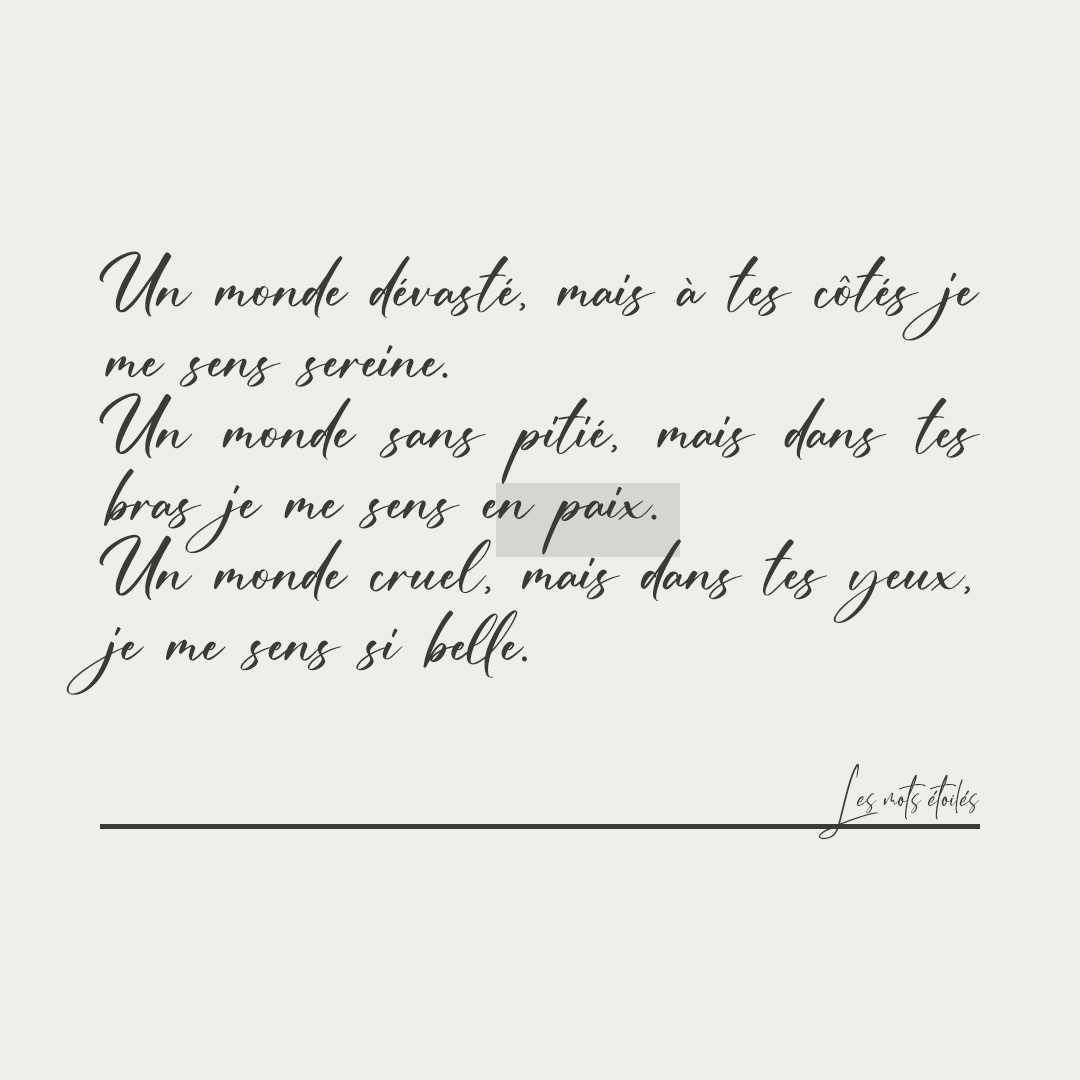 Un monde dévasté, mais à tes côtés je
me sens sereine.
Un monde sans pitié, mais dans tes
bras je me sens en paix.
Un monde cruel, mais dans tes yeux,
je me sens si belle.
Les mots étoilés